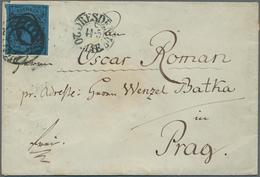 DRESDEN
Herrn
Oscar Roman
pr. Adresse: Herrn Wenzel Batka
in
Prag.
frei.